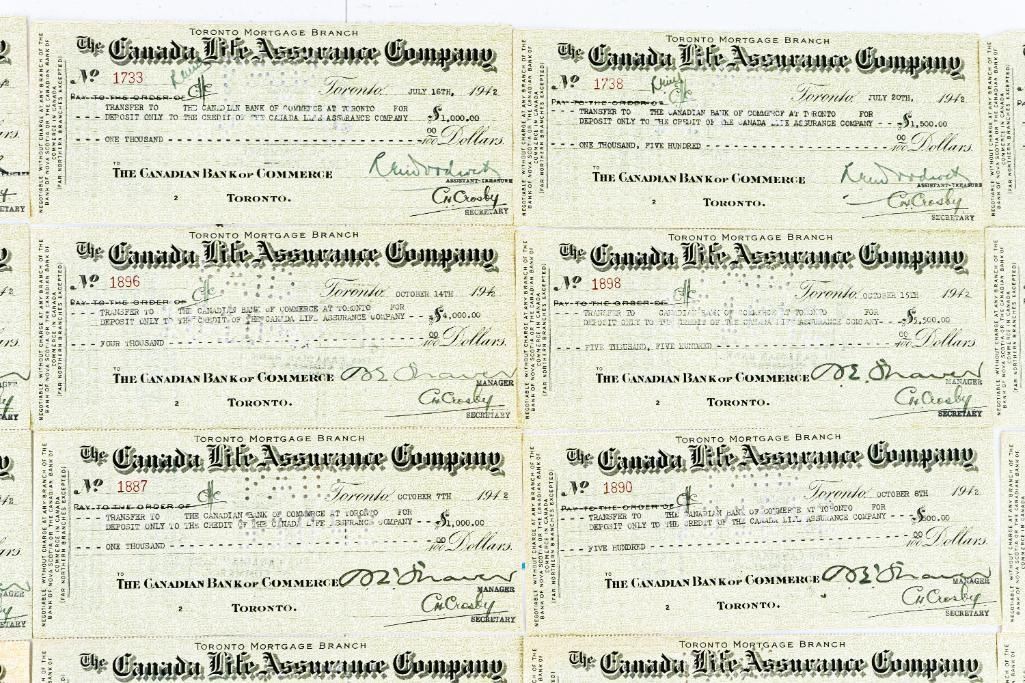 TORONTO MORTGAGE BRANCH
The Canada Life Assurance Company
Nº 1733
Toronto. JULY 16TH, 1942
PAY TO THE ORDER OF
TRANSFER TO THE CANADIAN BANK OF COMMERCE AT TORONTO FOR
DEPOSIT ONLY TO THE CREDIT OF THE CANADA LIFE ASSURANCE COMPANY $1,000.00
ONE THOUSAND 00/100 Dollars.
TO
THE CANADIAN BANK OF COMMERCE
ASSISTANT-TREASURER
2 TORONTO. CHCrosby
SECRETARY
NEGOTIABLE WITHOUT CHARGE AT ANY BRANCH OF THE
BANK OF NOVA SCOTIA OR THE CANADIAN BANK OF
COMMERCE IN CANADA
(FAR NORTHERN BRANCHES EXCEPTED)
TORONTO MORTGAGE BRANCH
The Canada Life Assurance Company
Nº 1738
Toronto. JULY 20TH, 1942
PAY TO THE ORDER OF
TRANSFER TO THE CANADIAN BANK OF COMMERCE AT TORONTO FOR
DEPOSIT ONLY TO THE CREDIT OF THE CANADA LIFE ASSURANCE COMPANY $1,500.00
ONE THOUSAND, FIVE HUNDRED 00/100 Dollars.
TO
THE CANADIAN BANK OF COMMERCE
ASSISTANT-TREASURER
2 TORONTO. CHCrosby
SECRETARY
NEGOTIABLE WITHOUT CHARGE AT ANY BRANCH OF THE
BANK OF NOVA SCOTIA OR THE CANADIAN BANK OF
COMMERCE IN CANADA
(FAR NORTHERN BRANCHES EXCEPTED)
TORONTO MORTGAGE BRANCH
The Canada Life Assurance Company
Nº 1896
Toronto. OCTOBER 14TH, 1942
PAY TO THE ORDER OF
TRANSFER TO THE CANADIAN BANK OF COMMERCE AT TORONTO
DEPOSIT ONLY TO THE CREDIT OF THE CANADA LIFE ASSURANCE COMPANY $4,000.00
FOUR THOUSAND 00/100 Dollars.
TO
THE CANADIAN BANK OF COMMERCE
MANAGER
2 TORONTO. CHCrosby
SECRETARY
NEGOTIABLE WITHOUT CHARGE AT ANY BRANCH OF THE
BANK OF NOVA SCOTIA OR THE CANADIAN BANK OF
COMMERCE IN CANADA
(FAR NORTHERN BRANCHES EXCEPTED)
TORONTO MORTGAGE BRANCH
The Canada Life Assurance Company
Nº 1898
Toronto. OCTOBER 15TH, 1942
PAY TO THE ORDER OF
TRANSFER TO CANADIAN BANK OF COMMERCE AT TORONTO FOR
DEPOSIT ONLY TO THE CREDIT OF THE CANADA LIFE ASSURANCE COMPANY $5,500.00
FIVE THOUSAND, FIVE HUNDRED 00/100 Dollars.
TO
THE CANADIAN BANK OF COMMERCE
MANAGER
2 TORONTO. CHCrosby
SECRETARY
NEGOTIABLE WITHOUT CHARGE AT ANY BRANCH OF THE
BANK OF NOVA SCOTIA OR THE CANADIAN BANK OF
COMMERCE IN CANADA
(FAR NORTHERN BRANCHES EXCEPTED)
TORONTO MORTGAGE BRANCH
The Canada Life Assurance Company
Nº 1887
Toronto. OCTOBER 7TH 1942
PAY TO THE ORDER OF
TRANSFER TO THE CANADIAN BANK OF COMMERCE AT TORONTO FOR
DEPOSIT ONLY TO THE CREDIT OF THE CANADA LIFE ASSURANCE COMPANY $1,000.00
ONE THOUSAND 00/100 Dollars.
TO
THE CANADIAN BANK OF COMMERCE
MANAGER
2 TORONTO. CHCrosby
SECRETARY
NEGOTIABLE WITHOUT CHARGE AT ANY BRANCH OF THE
BANK OF NOVA SCOTIA OR THE CANADIAN BANK OF
COMMERCE IN CANADA
(FAR NORTHERN BRANCHES EXCEPTED)
TORONTO MORTGAGE BRANCH
The Canada Life Assurance Company
Nº 1890
Toronto. OCTOBER 8TH 1942
PAY TO THE ORDER OF
TRANSFER TO THE CANADIAN BANK OF COMMERCE AT TORONTO FOR
DEPOSIT ONLY TO THE CREDIT OF THE CANADA LIFE ASSURANCE COMPANY $500.00
FIVE HUNDRED 00/100 Dollars.
TO
THE CANADIAN BANK OF COMMERCE
MANAGER
2 TORONTO. CHCrosby
SECRETARY
NEGOTIABLE WITHOUT CHARGE AT ANY BRANCH OF THE
BANK OF NOVA SCOTIA OR THE CANADIAN BANK OF
COMMERCE IN CANADA
(FAR NORTHERN BRANCHES EXCEPTED)
TORONTO MORTGAGE BRANCH
The Canada Life Assurance Company
TORONTO MORTGAGE BRANCH
The Canada Life Assurance Company